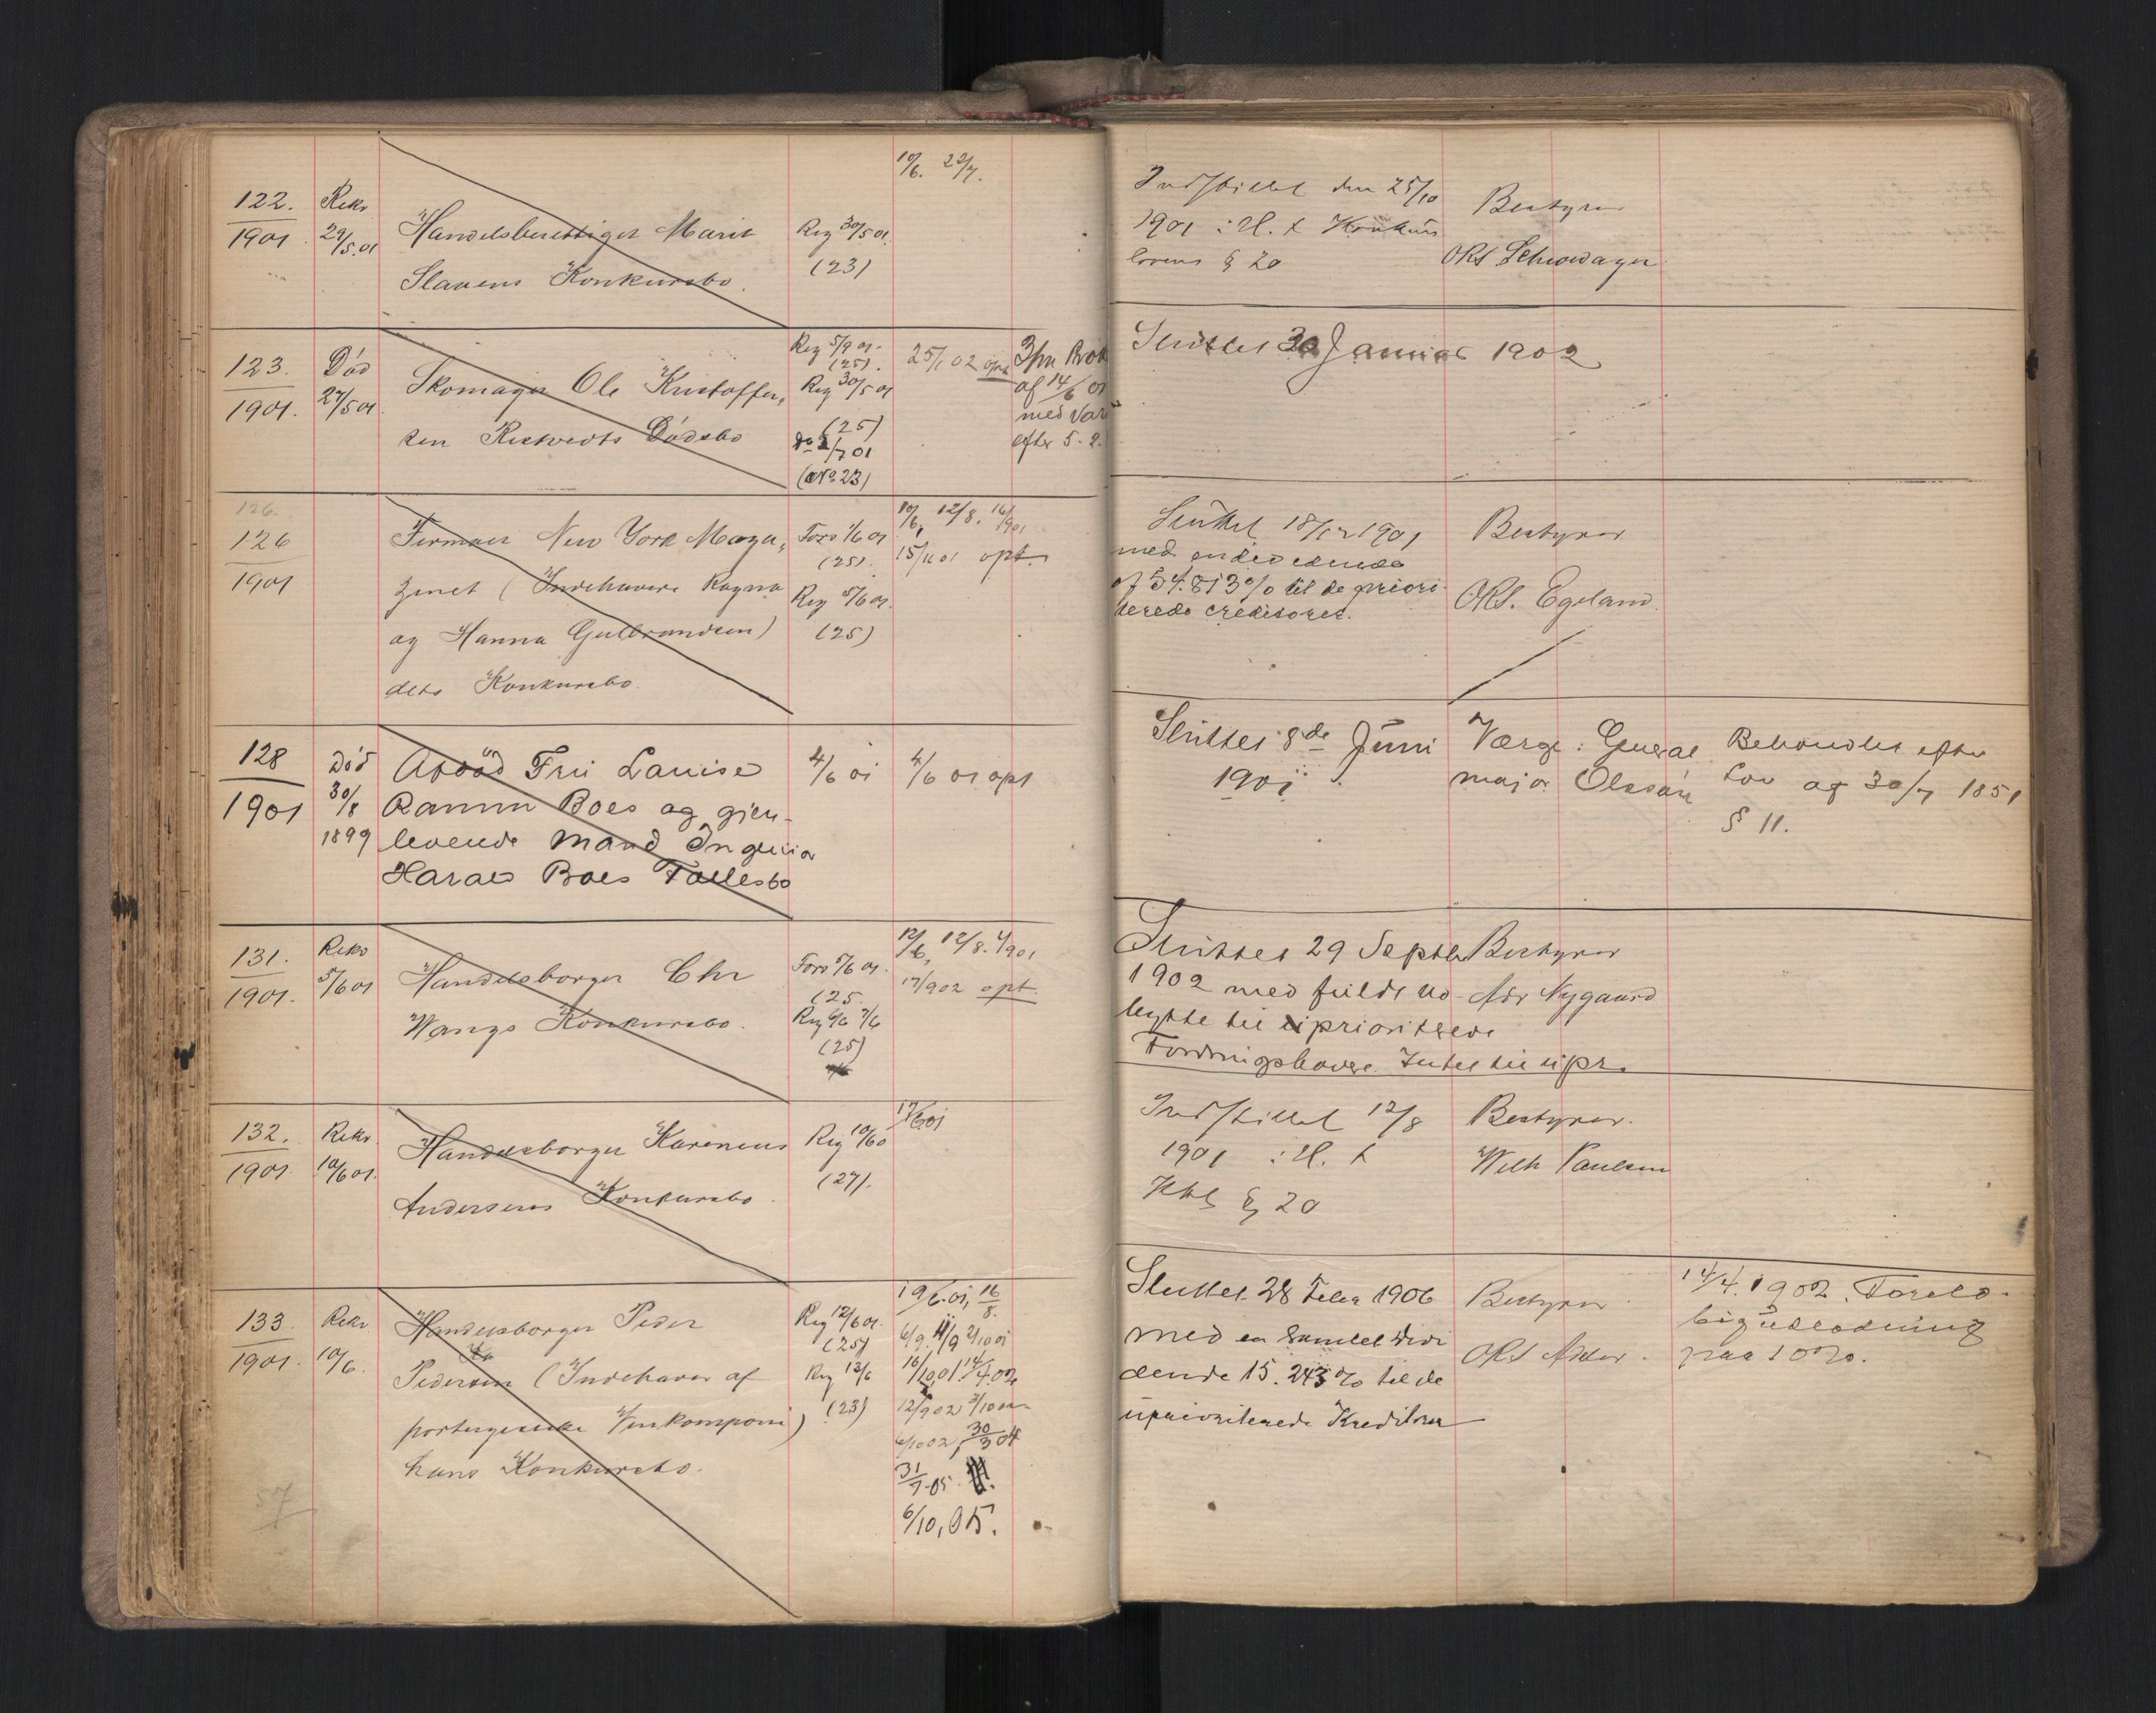 122.
1901
Rekv
29/5.01
Handelsberettiget Marit
Slavens Konkursbo.
Reg 30/5 01.
(23)
10/6. 22/7.
Indstillet den 25/10
1901 i H. t. Konkurs
lovens § 20
Bestyrer
ORS
123.
1901.
Død
27/5 01.
Skomager Ole Kristoffer,
sen Dødsbo
Reg 5/9 01.
(25).
Reg 30/5 01
(25)
do /7 01
(No 23)
25/1 02 opt
af 14/6 01
med
efter 5.2.
Sluttet 30 Januar 1902
126.
126
1901
Firmaet New York Maga,
zinet (Indehavere Ragna
og Hanna Gulbrandsen)
dets Konkursbo.
Foro 1/6 01
(25).
Reg 5/6 01.
(25)
10/6, 12/8. 16/9 01
15/11 01 opt.
Sluttet 18/12 1901
med en dividende
af 54.813% til de priori
terede creditorer.
Bestyrer
ORS. Egeland.
128
1901
Død
30/8
1899
Afdød Fru Louise
Ramm Boes og gjen-
levende Mand Ingeniør
Harald Boes Fællesbo
4/6 01
4/6 01 opt
Sluttet 8de Juni
1901.
Værge: General
major Olssøn
Behandlet efter
Lov af 30/7 1851
§ 11.
131.
1901.
Rekv
5/6 01
Handelsborger Chr
Wangs Konkursbo.
Foro 5/6 01.
(25.
Reg 6/6 7/6
(25)
12/6, 12/8. 4/9 01
17/9 02 opt.
Sluttet 29 Septbr
1902 med fuldt ud-
bytte til prioriterede
Fordringshavere. Intet til upr.
Bestyrer
Adv Nygaard
132.
1901.
Rekv.
10/6 01.
Handelsborger Karenius
Andersens Konkursbo
Reg 10/6 0
(27).
17/6 01
Indstillet 12/8
1901 i H. t.
Kkl § 20
Bestyrer.
Wilh Paulsen
133.
1901.
Rekv
10/6.
Handelsborger Peder
Pedersen (Indehaver af
portugisiske Vinkompani)
hans Konkursbo.
Reg 12/6 01.
(25)
Reg 13/6
(23)
19/6.01, 16/8.
6/9. 11/9 2/10 01
16/10.01. 14/4.02
12/9 02 3/10 02
6/10 02, 30/3 04
31/7.05.
6/10, 05.
Sluttet 28 Febr 1906
med en samlet Divi
dende 15.243% til de
uprioriterede Kreditorer
Bestyrer
ORS
14/4. 1902. Forelø-
big udlodning
paa 10%.
57